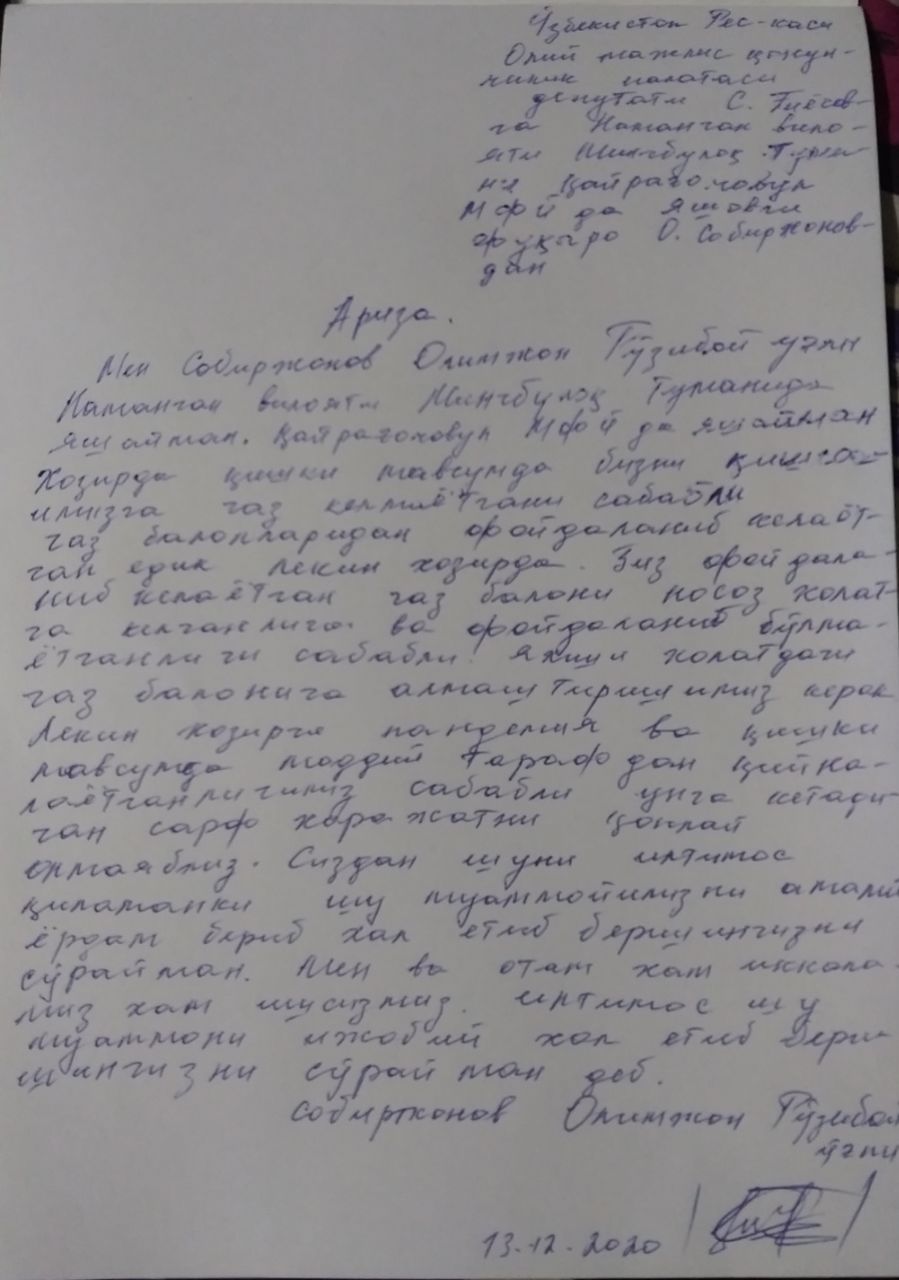 Ўзбекистон Рес-каси
Олий мажлис қонун-
чилик палатаси
депутати С. Ғиёсов-
га Наманган вило-
яти Мингбулоқ Тума-
ни Қайрағочовул
МФЙ да яшовчи
фуқаро О. Собиржонов-
дан
Ариза.
Мен Собиржонов Олимжон Ғўзибой ўғли
Наманган вилояти Мингбулоқ Туманида
яшайман. Қайрағочовул МФЙ да яшайман
Хозирда қишки мавсумда бизни қишло-
ғимизга газ келмаётгани сабабли
газ балонларидан фойдаланиб келаёт-
ган едик лекин хозирда. Биз фойдала-
ниб келаётган газ балони носоз холат-
га келганлиги ва фойдаланиб бўлма-
ётганлиги сабабли. яхши холатдаги
газ балонига алмаштиришимиз керак
Лекин хозирги пандемия ва қишки
мавсумда моддий тарафдан қийна-
лаётганлигимиз сабабли унга кетади-
ган сарф харажатни қоплай
олмаябмиз. Сиздан шуни илтимос
қиламанки шу муаммойимизни амалий
ёрдам бериб хал етиб беришингизни
сўрайман. Мен ва отам хам иккала-
миз хам ишсизмиз. илтимос шу
муаммони ижобий хал етиб бери-
шингизни сўрайман деб.
Собиржонов Олимжон Ғўзибой
ўғли
13.12.2020